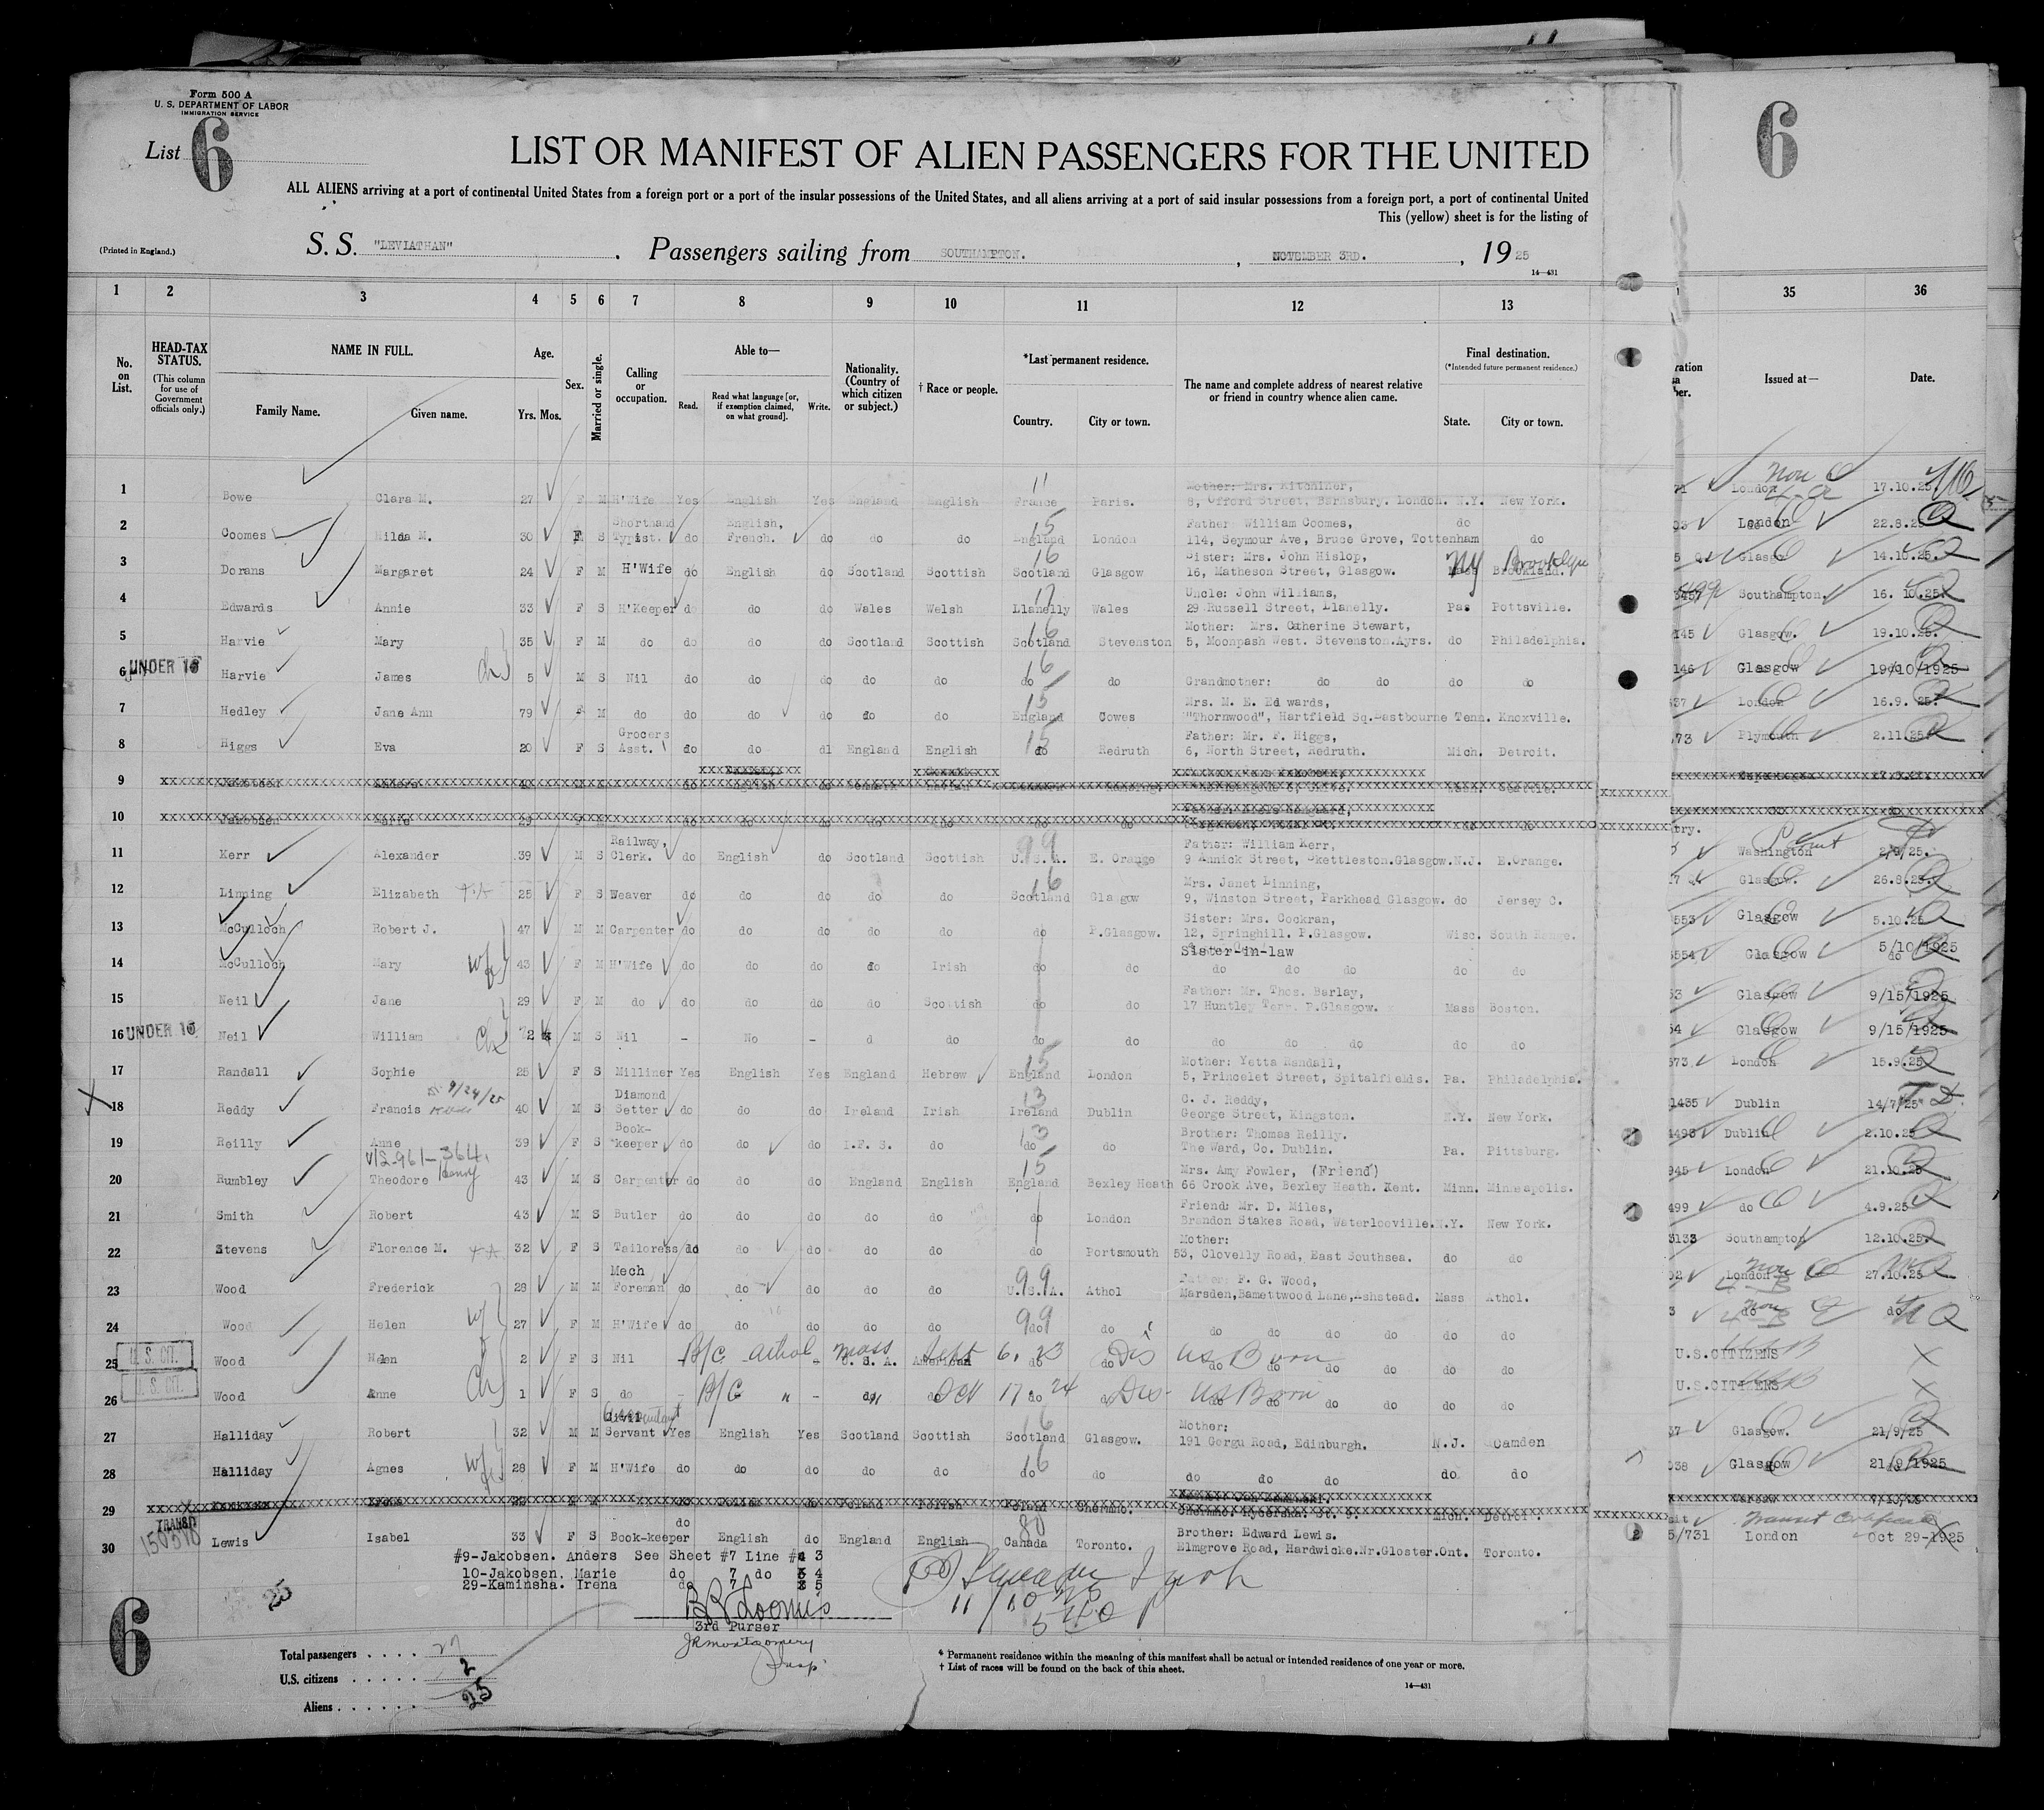 Form 500 A
U. S. DEPARTMENT OF LABOR
IMMIGRATION SERVICE
List 6
6
LIST OR MANIFEST OF ALIEN PASSENGERS FOR THE UNITED
ALL ALIENS arriving at a port of continental United States from a foreign port or a port of the insular possessions of the United States, and all aliens arriving at a port of said insular possessions from a foreign port, a port of continental United
This (yellow) sheet is for the listing of
(Printed in England.)
S. S. "LEVIATHAN" . Passengers sailing from SOUTHAMPTON. , NOVEMBER 3RD. , 19 25
14—431
1 2 3 4 5 6 7 8 9 10 11 12 13 35 36
No. on List.
HEAD-TAX STATUS.
(This column for use of Government officials only.)
NAME IN FULL.
Family Name. Given name.
Age.
Yrs. Mos.
Sex.
Married or single.
Calling or occupation.
Able to—
Read. Read what language [or, if exemption claimed, on what ground]. Write.
Nationality. (Country of which citizen or subject.)
† Race or people.
*Last permanent residence.
Country. City or town.
The name and complete address of nearest relative or friend in country whence alien came.
Final destination.
(*Intended future permanent residence.)
State. City or town.
Issued at— Date.
Mother: Mrs. Kitchiner,
1 Bowe Clara M. 27 F M H'Wife Yes English Yes England English France Paris. 8, Offord Street, Barnsbury. London. N.Y. New York. London 17.10.25
Shorthand English, Father: William Coomes, do
2 Coomes Hilda M. 30 F S Typist. do French. do do do England London 114, Seymour Ave, Bruce Grove, Tottenham do London 22.8.25
Sister: Mrs. John Hislop,
3 Dorans Margaret 24 F M H'Wife do English do Scotland Scottish Scotland Glasgow 16, Matheson Street, Glasgow. NY Brooklyn Glasgow 14.10.25
Uncle: John Williams,
4 Edwards Annie 33 F S H'Keeper do do do Wales Welsh Llanelly Wales 29 Russell Street, Llanelly. Pa. Pottsville. Southampton. 16. 10.25
Mother: Mrs. Catherine Stewart,
5 Harvie Mary 35 F M do do do do Scotland Scottish Scotland Stevenston 5, Moonpash West. Stevenston.Ayrs. do Philadelphia. Glasgow. 19.10.25
UNDER 16
6 Harvie James ch 5 M S Nil do do do do do do do Grandmother: do do do do Glasgow 19/10/1925
Mrs. M. E. Edwards,
7 Hedley Jane Ann 79 F M do do do do do do England Cowes "Thornwood", Hartfield Sq. Eastbourne Tenn. Knoxville. London 16.9. 25.
Grocers Father: Mr. F. Higgs,
8 Higgs Eva 20 F S Asst. do do dl England English do Redruth 6, North Street, Redruth. Mich. Detroit. Plymouth 2.11.25
9
10 Jakobsen Marie
Railway, Father: William Kerr,
11 Kerr Alexander 39 M S Clerk. do English do Scotland Scottish U.S.A. E. Orange 9 Annick Street, Skettleston.Glasgow. N.J. E.Orange. Washington
Mrs. Janet Linning,
12 Linning Elizabeth 25 F S Weaver do do do do do Scotland Glasgow 9, Winston Street, Parkhead Glasgow. do Jersey C. Glasgow. 26.8.25
Sister: Mrs. Cockran,
13 McCulloch Robert J. 47 M M Carpenter do do do do do do P.Glasgow. 12, Springhill. P.Glasgow. Wisc. South Range. Glasgow 5.10.25
Sister-in-law
14 McCulloch Mary wf 43 F M H'Wife do do do do Irish do do do do do do do Glasgow 5/10/1925
Father: Mr. Thos. Barlay,
15 Neil Jane 29 F M do do do do do Scottish do do 17 Huntley Terr. P.Glasgow. Mass Boston. Glasgow 9/15/1925
UNDER 16
16 Neil William ch 2 M S Nil - No - d do do do do do do do do Glasgow 9/15/1925
Mother: Yetta Randall,
17 Randall Sophie 25 F S Milliner Yes English Yes England Hebrew England London 5, Princelet Street, Spitalfields. Pa. Philadelphia. London 15.9.25
9/24/25 Diamond C. J. Reddy,
18 Reddy Francis 40 M S Setter do do do Ireland Irish Ireland Dublin George Street, Kingston. N.Y. New York. 1435 Dublin 14/7/25
Book- Brother: Thomas Reilly.
19 Reilly Anne 39 F S keeper do do do I.F.S. do do do The Ward, Co. Dublin. Pa. Pittsburg. Dublin 2.10.25
V/S-961-364. Henry Mrs. Amy Fowler, (Friend)
20 Rumbley Theodore 43 M S Carpenter do do do England English England Bexley Heath 66 Crook Ave, Bexley Heath. Kent. Minn. Minneapolis. London 21.10.25
Friend: Mr. D. Miles,
21 Smith Robert 43 M S Butler do do do do do do London Brandon Stakes Road, Waterlooville. N.Y. New York. 499 do 4.9.25
Mother:
22 Stevens Florence M. 32 F S Tailoress do do do do do do Portsmouth 53, Clovelly Road, East Southsea. do do Southampton 12.10.25
Mech Father: F. G. Wood,
23 Wood Frederick 28 M M Foreman do do do do do U.S.A. Athol Marsden,Bamettwood Lane,Ashstead. Mass Athol. London 27.10.25
24 Wood Helen wf 27 F M H'Wife do do do do do do do do do do do do do do
U. S. CIT.
25 Wood Helen 2 F S Nil B/C Athol Mass - U. S. A. American Sept 6, 23 do do US Born do do do do U.S.CITIZENS
U. S. CIT.
26 Wood Anne ch 1 F S do - B/C " - do do Oct 17 24 do US Born do do do do do U.S.CITIZENS
Civil Mother:
27 Halliday Robert 32 M M Servant Yes English Yes Scotland Scottish Scotland Glasgow. 191 Gorgu Road, Edinburgh. N.J. Camden Glasgow. 21/9/25
28 Halliday Agnes wf 28 F M H'Wife do do do do do do do do do do do do Glasgow 21/9/1925
29 Irena Poland Polish Poland Mich. Detroit. Warsaw
TRANSIT 150598 do Brother: Edward Lewis.
30 Lewis Isabel 33 F S Book-keeper English do England English Canada Toronto. Elmgrove Road, Hardwicke.Nr.Gloster. Ont. Toronto. 5/731 London Oct 29-1925
#9-Jakobsen. Anders See Sheet #7 Line # 3
10-Jakobsen. Marie do 7 do 4
29-Kaminsha. Irena do 7 5
25
11/10
BB Loomis
3rd Purser
JR Montgomery
6
Total passengers . . . . 27
U.S. citizens . . . . . . 2
Aliens . . . . . . . 25
* Permanent residence within the meaning of this manifest shall be actual or intended residence of one year or more.
† List of races will be found on the back of this sheet.
14—431